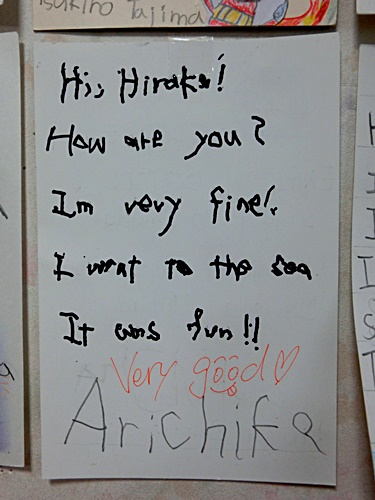 Tajima
Hi, Hiraka!
How are you?
Im very fine!
I went to the sea
It was fun!!
Very good♡
Arichika